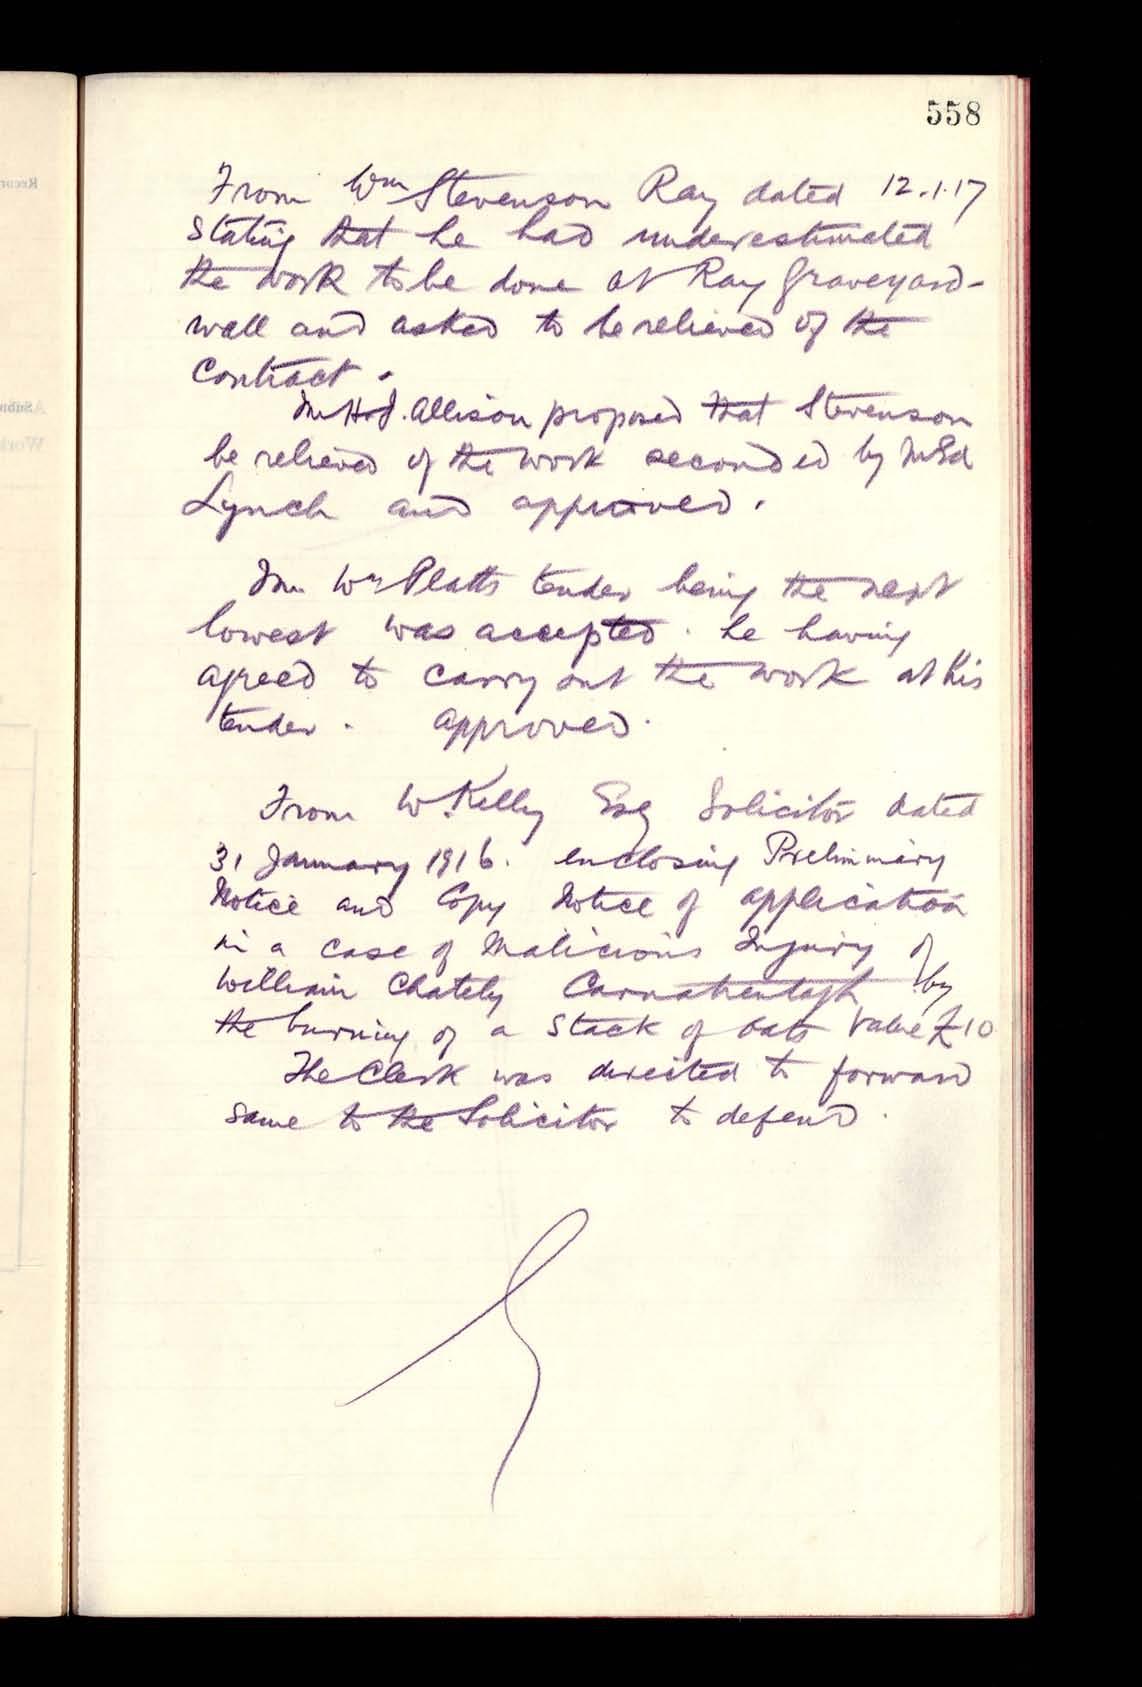 558
From Wm Stevenson Ray dated 12.1.17
Stating that he had underestimated
the work to be done at Ray Graveyard-
wall and asked to be relieved of the
Contract.
Mr H.J. Allison proposed that Stevenson
be relieved of the work seconded by Mr Ed
Lynch and approved.
Mr Wm Platts tender being the next
lowest was accepted. he having
agreed to carry out the work at his
tender. approved.
From W. Kelly Esq Solicitor dated
31 January 1916. enclosing Preliminary
Notice and Copy Notice of application
in a case of Malicious Injury of
William Chately by
the burning of a Stack of oats Value £10
The Clerk was directed to forward
same to the Solicitor to defend.